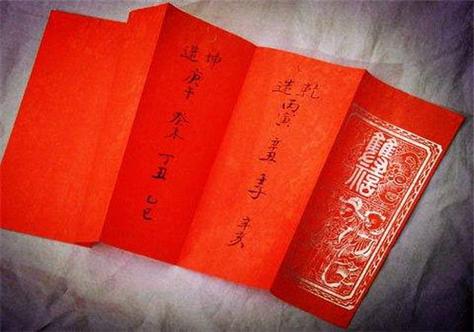 雙
乾造 丙寅 辛丑 壬子 辛亥
坤造 庚午 癸未 丁丑 乙巳